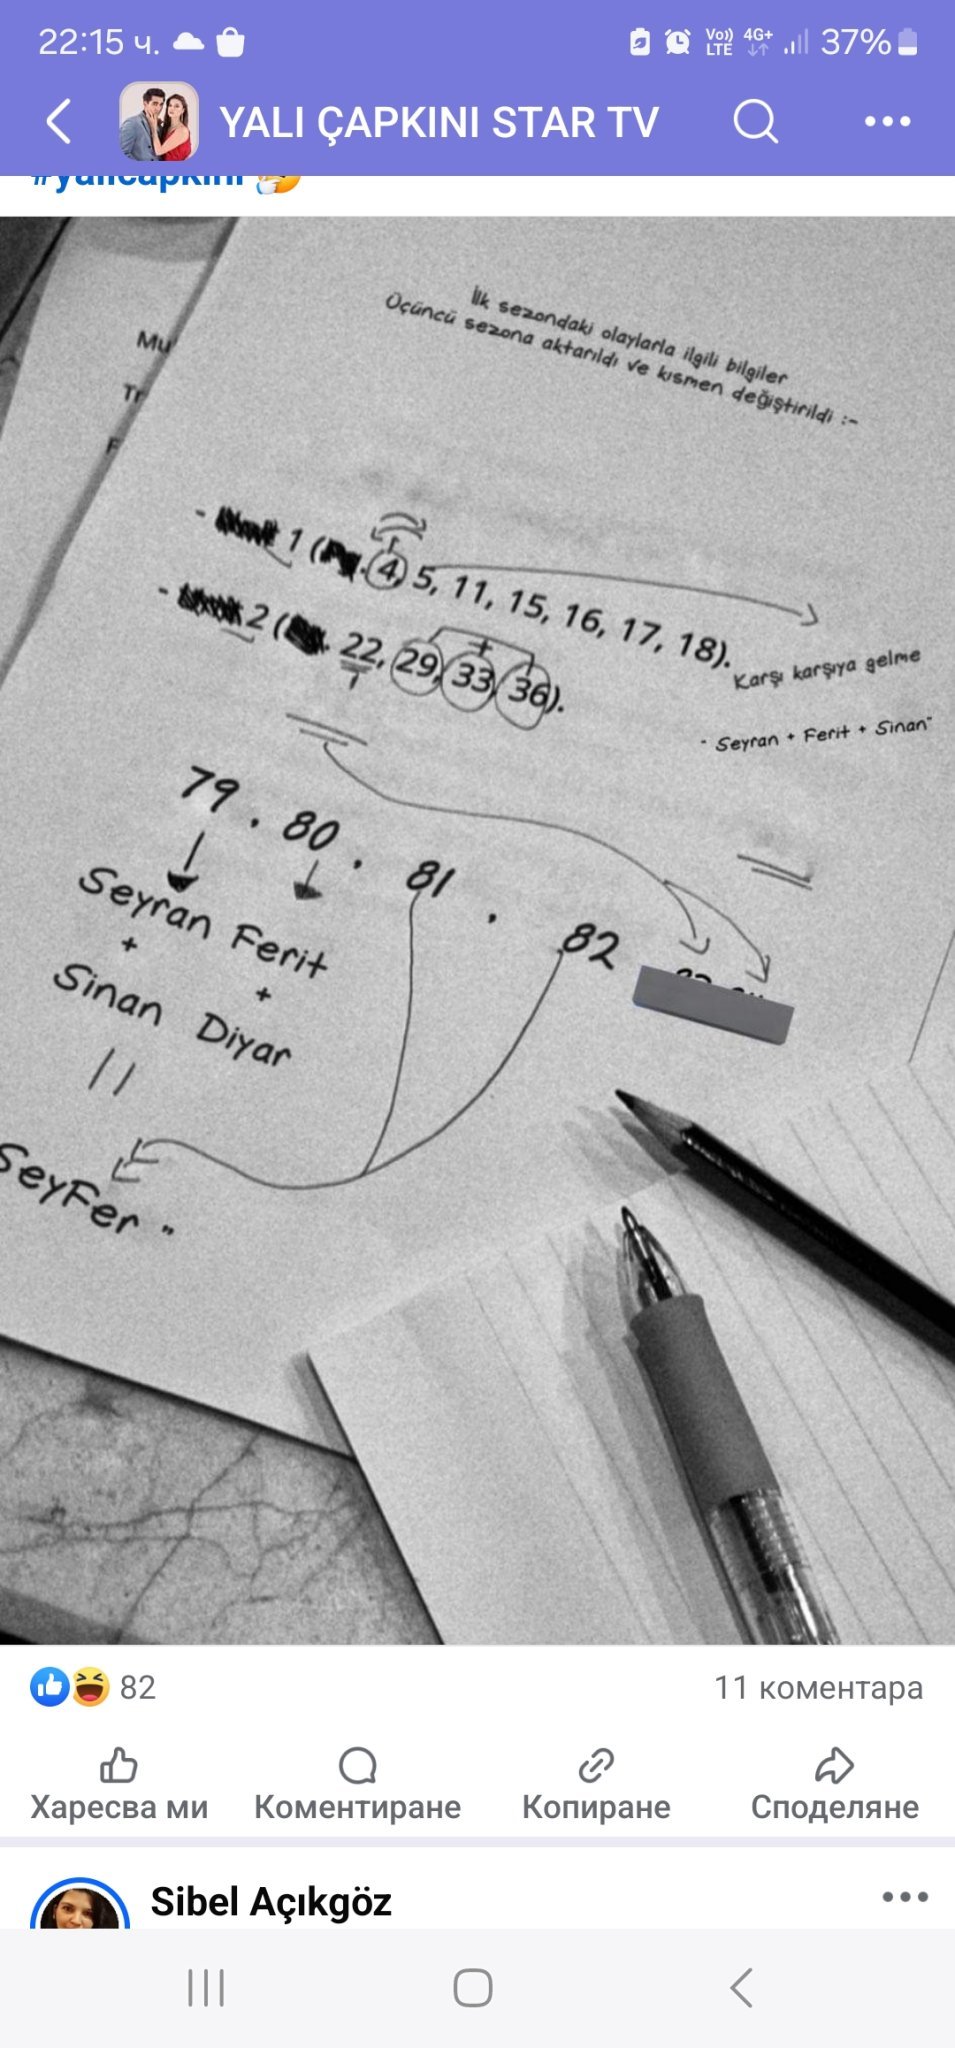 22:15 ч.
Vo)) LTE 4G+ 37%
YALI ÇAPKINI STAR TV
#yalicapkini
İlk sezondaki olaylarla ilgili bilgiler
Üçüncü sezona aktarıldı ve kısmen değiştirildi :-
Mu
Tr
F
- 1 ( . 4, 5, 11, 15, 16, 17, 18).
- 2 ( . 22, 29, 33, 36).
+
Karşı karşıya gelme
- Seyran + Ferit + Sinan"
79 . 80 . 81 . 82
Seyran Ferit
+ +
Sinan Diyar
SeyFer "
82
11 коментара
Харесва ми Коментиране Копиране Споделяне
Sibel Açıkgöz